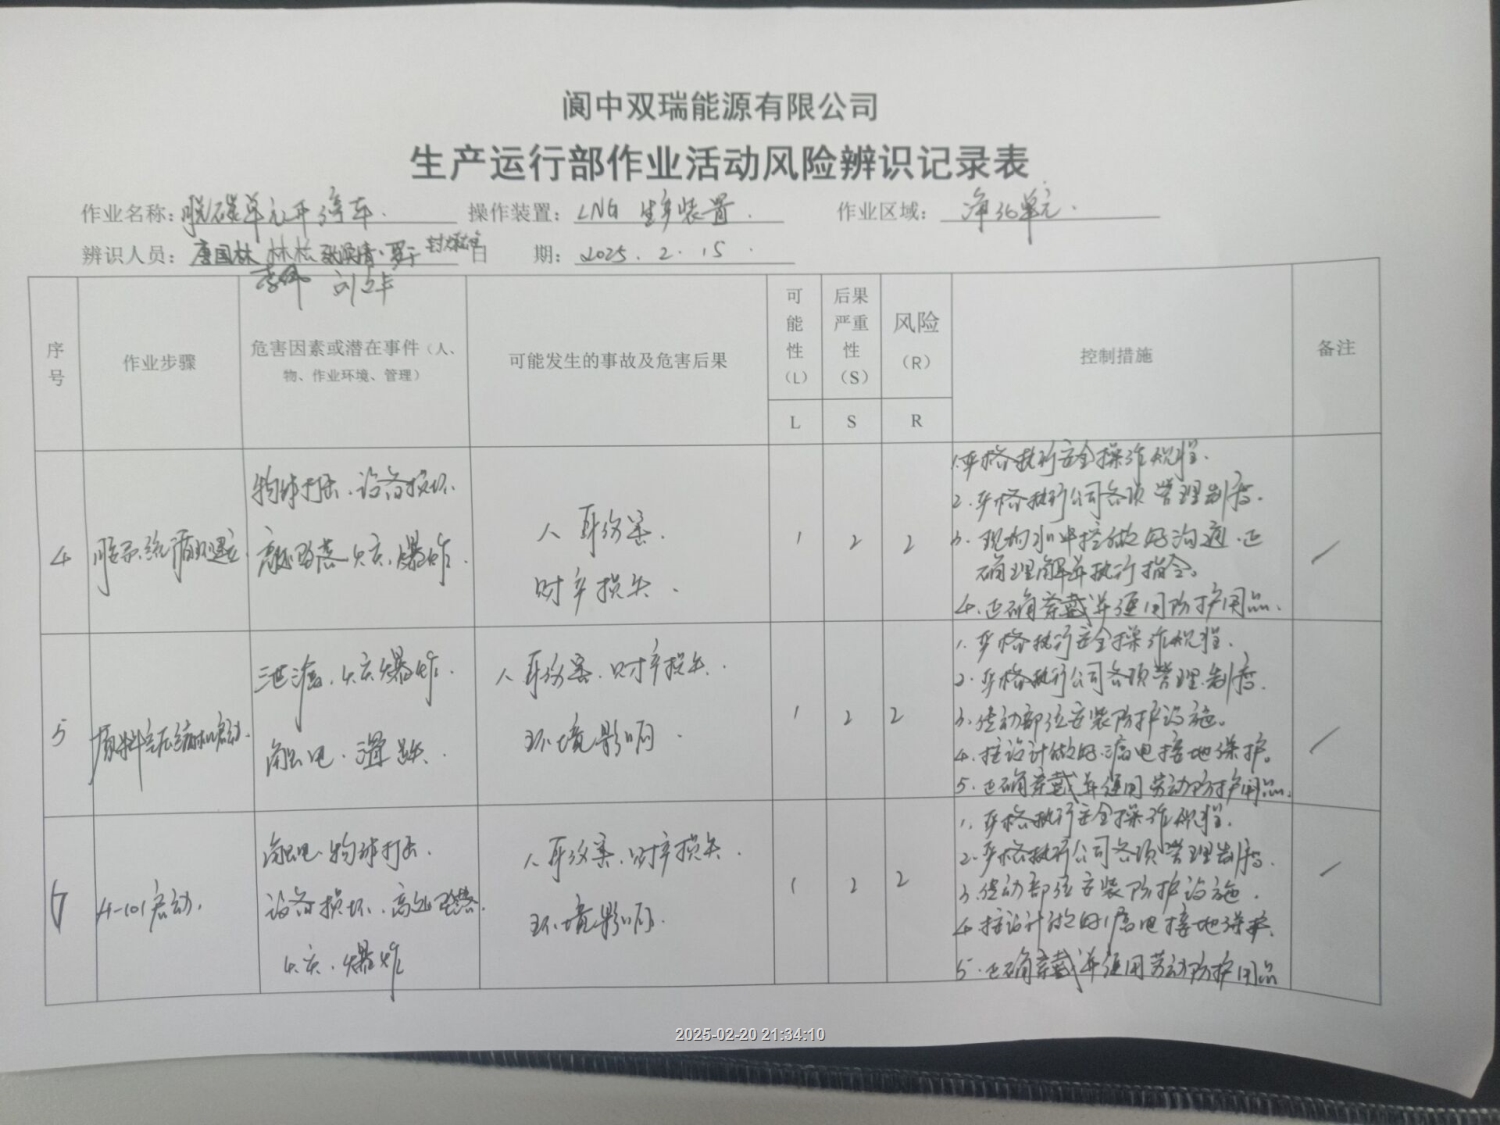 阆中双瑞能源有限公司
生产运行部作业活动风险辨识记录表
作业名称：脱碳单元开停车. 操作装置：LNG 生产装置. 作业区域：净化单元.
辨识人员：唐国林 林松 罗于 日 期：2025. 2. 15
李伟 刘立华
序号 作业步骤 危害因素或潜在事件（人、物、作业环境、管理） 可能发生的事故及危害后果 可能性（L） 后果严重性（S） 风险（R） 控制措施 备注
L S R
4 物体打击、设备损坏. 高处坠落 火灾、爆炸. 人身伤害. 财产损失. 1 2 2
1.严格执行安全操作规程.
2.严格执行公司各项管理制度.
3.现场和中控做好沟通.正
确理解并执行指令。
4.正确穿戴并使用防护用品.
5 原料气压缩机启动. 泄漏、火灾爆炸. 触电、 人身伤害、财产损失. 环境影响. 1 2 2
1.严格执行安全操作规程.
2.严格执行公司各项管理制度.
3.传动部位安装防护设施。
4.按设计做好漏电接地保护。
5.正确穿戴并使用劳动防护用品.
6 H-101启动. 触电、物体打击. 设备损坏、高处坠落. 火灾、爆炸 人身伤害、财产损失. 环境影响. 1 2 2
1.严格执行安全操作规程.
2.严格执行公司各项管理制度.
3.传动部位安装防护设施.
4.按设计做好漏电接地保护.
5.正确穿戴并使用劳动防护用品
2025-02-20 21:34:10